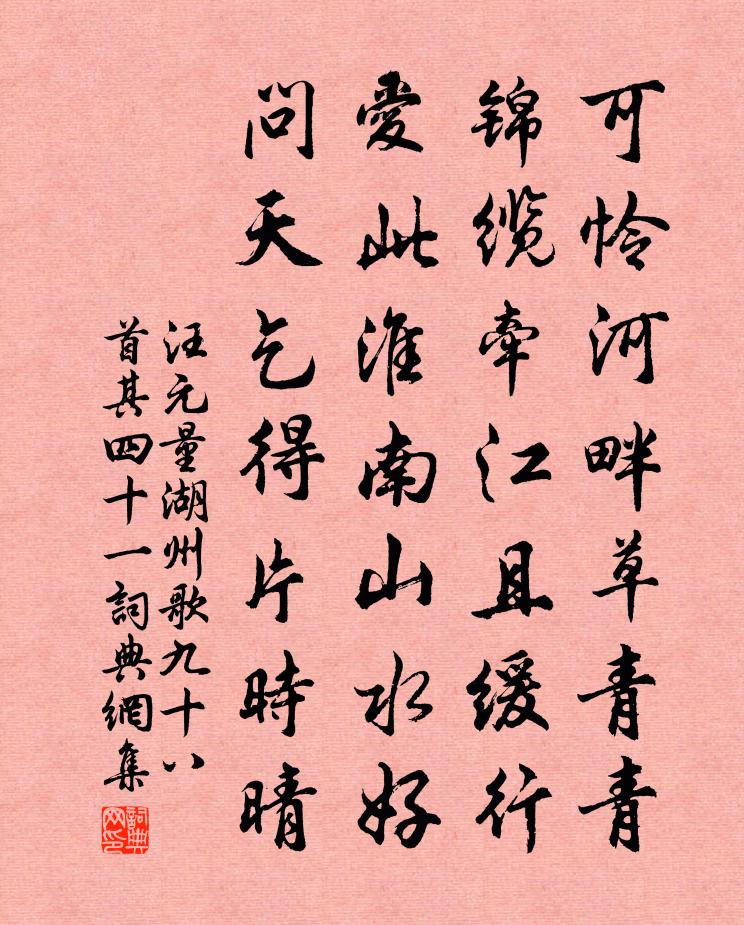 可怜河畔草青青
锦缆牵江且缓行
愛此淮南山水好
问天乞得片時晴
汪元量湖州歌九十八
首其四十一詞典網集
詞典网印